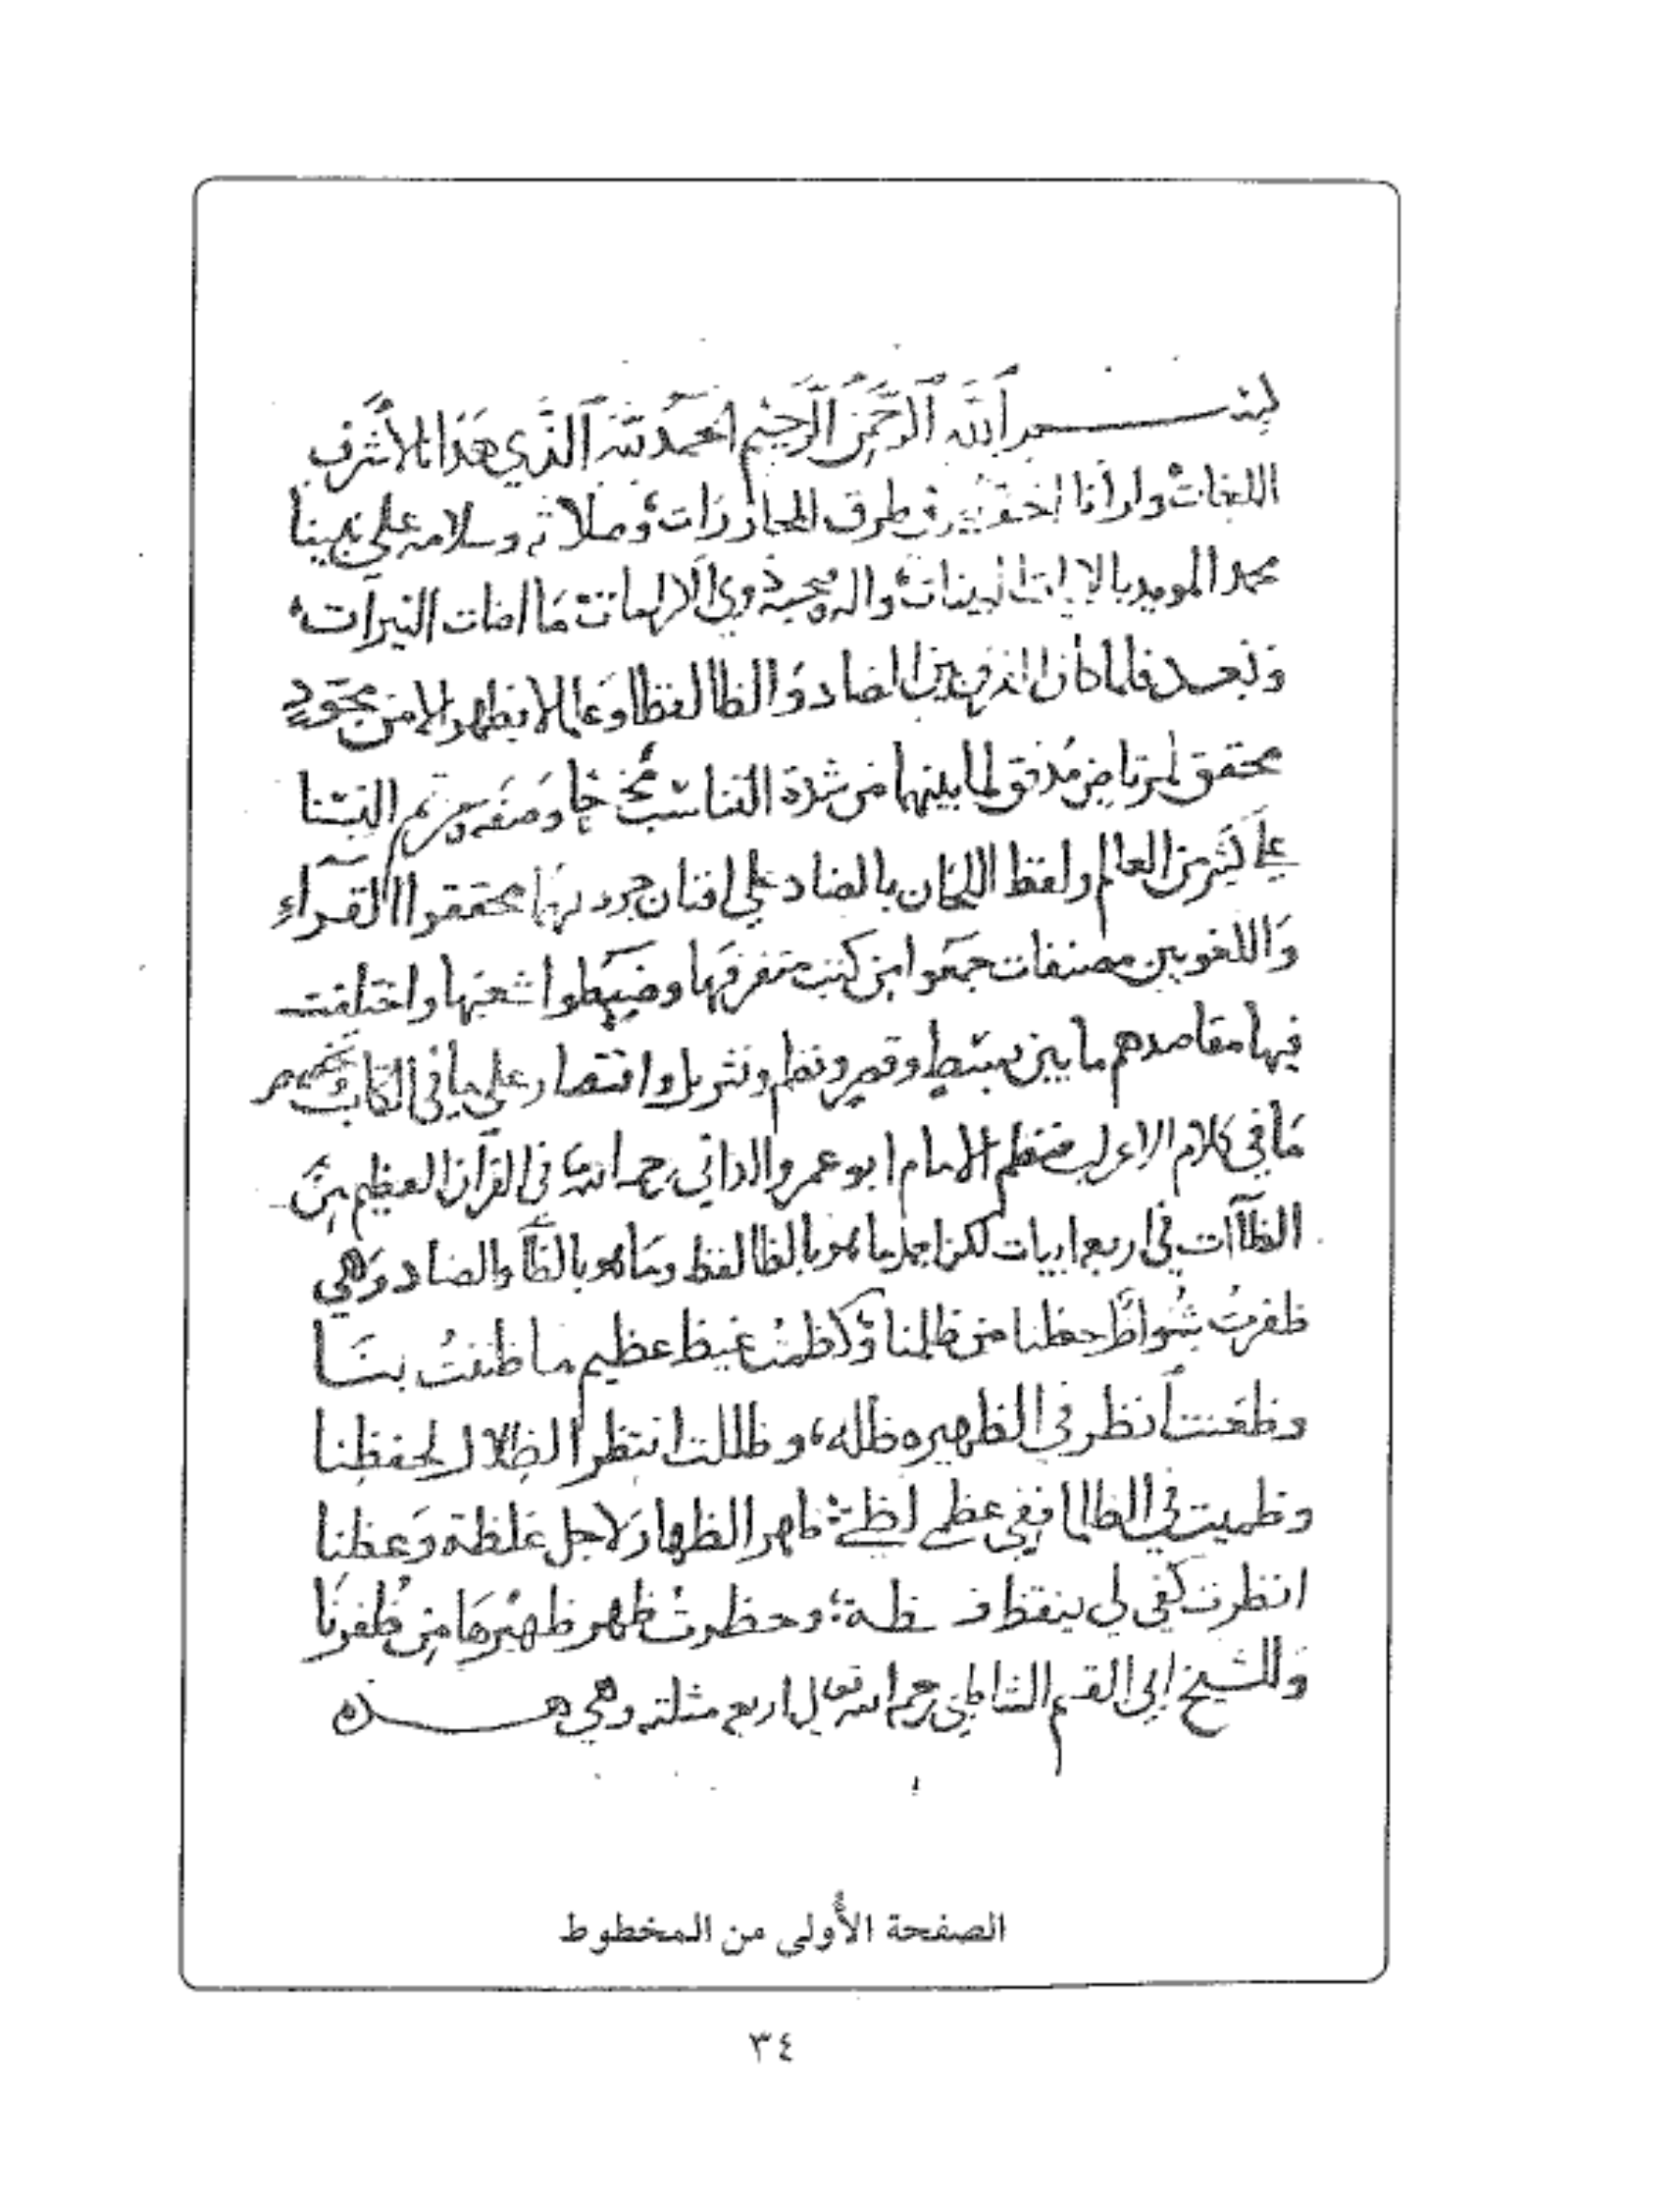 بسم الله الرحمن الرحيم الحمد لله الذي هدانا لأشرف
اللغات وارانا في طرق وصلاته وسلامه على نبينا
محمد المويد بالايات البينات واله وصحبه ذوي مَا اضات النيرات
وَبعد فلما كان الفرق بين الضاد وَالظا لفظا لا يظهر الا من مجَوّدٍ
محقق مُدقق لما بينهما من شدة التناسب مخرجًا وَصفة
على كثير من العالم ولفظ بالضاد على محققوا القرآء
وَاللغويين مصنفات جمعَوا من كتب متفرقها وضبطوا شعثها واختلفت
فيها مقاصدهم ما بين بسْطٍ وقصرٍ ونظم ونثر بل واقتصار على ما في الكتاب
مَا في كلام الاعراب فنظم الامام ابو عمرو الداني رحمه الله في القرآن العظيم مِنَ
الظآآت في اربع ابيات لكن ما هو بالظا لفظ وَما هو بالظآء والضاد وَهي
ظفرتُ شُواظُ بحظنا من ظلمنا وَكظمْتُ غيظ عظيم ما ظننتُ بنَا
وظعَنت أنظر في الظهيره ظله وظللت انتظر الظِلال لحفظنا
وظميت في الظلما ففي عظمي لظى ظهر الظهار لاجل غلظة وَعظنا
انظرت كي لي يتقظ فظة وحظرت ظهر ظهيْرهَا مِن ظُفرنَا
وَللشيخ ابي القسم الشاطبي رحمه الله تعالى اربع مثلته وهي هذه
الصفحة الأولى من المخطوط
٣٤